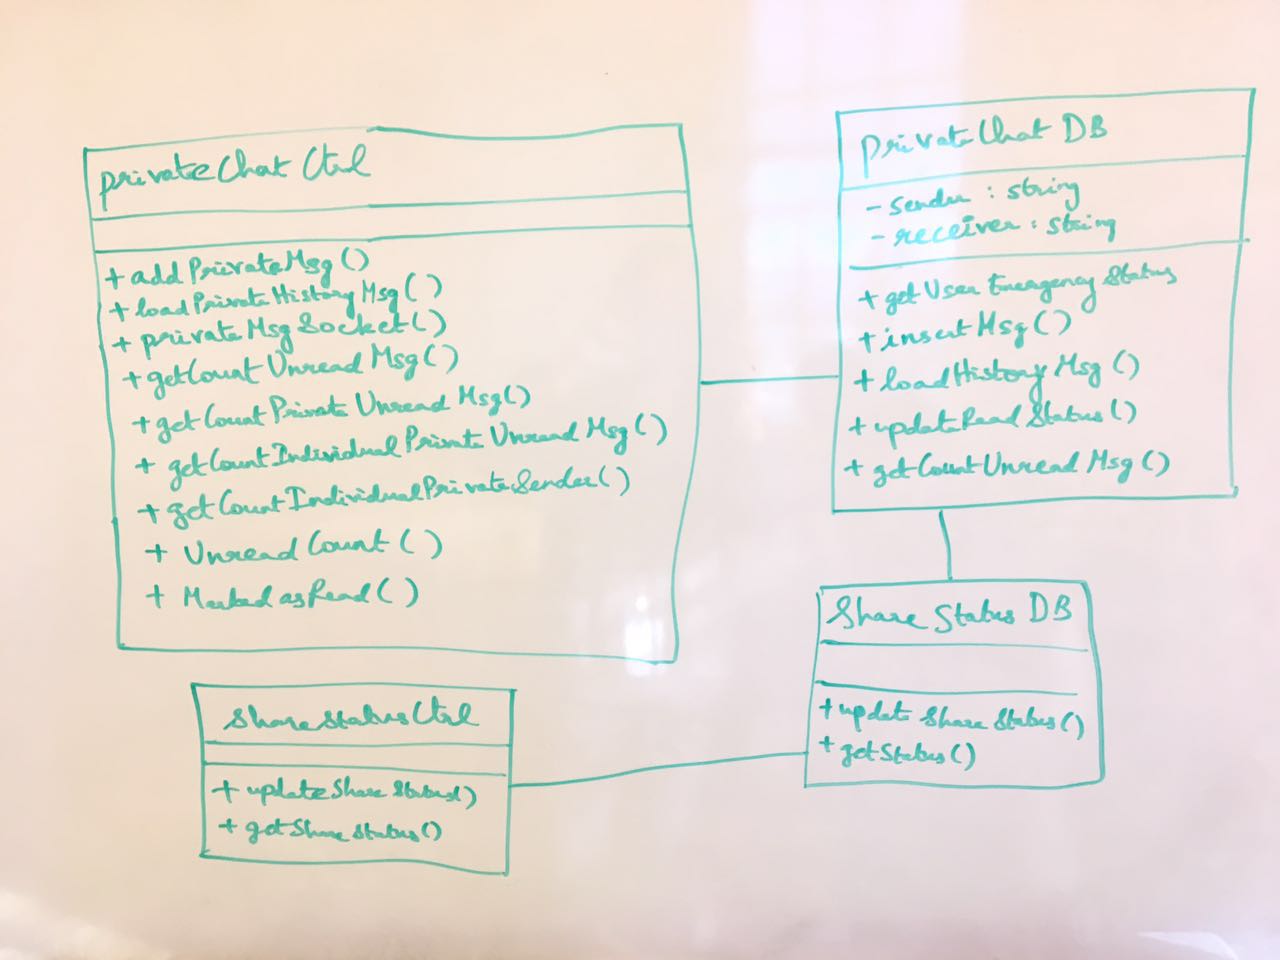 privateChat Ctrl
+ addPrivateMsg()
+ loadPrivateHistoryMsg()
+ privateMsgSocket()
+ getCount Unread Msg()
+ getCount Private Unread Msg()
+ getCountIndividual Private Unread Msg()
+ getCountIndividualPrivateSender()
+ Unread Count()
+ Marked asRead()
privateChat DB
- sender : string
- receiver : string
+ get User Emergency Status
+ insertMsg()
+ loadHistory Msg()
+ updateRead Status()
+ getCount Unread Msg()
Share Status DB
+ update Share Status()
+ getStatus()
shareStatusCtrl
+ updateShare Status()
+ getShare Status()